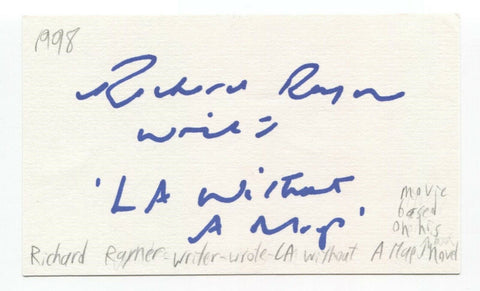 1998
Richard Rayner
writer
'LA Without
A Map'
movie
based
on his
novel
Richard Rayner-writer-wrote-LA without A Map